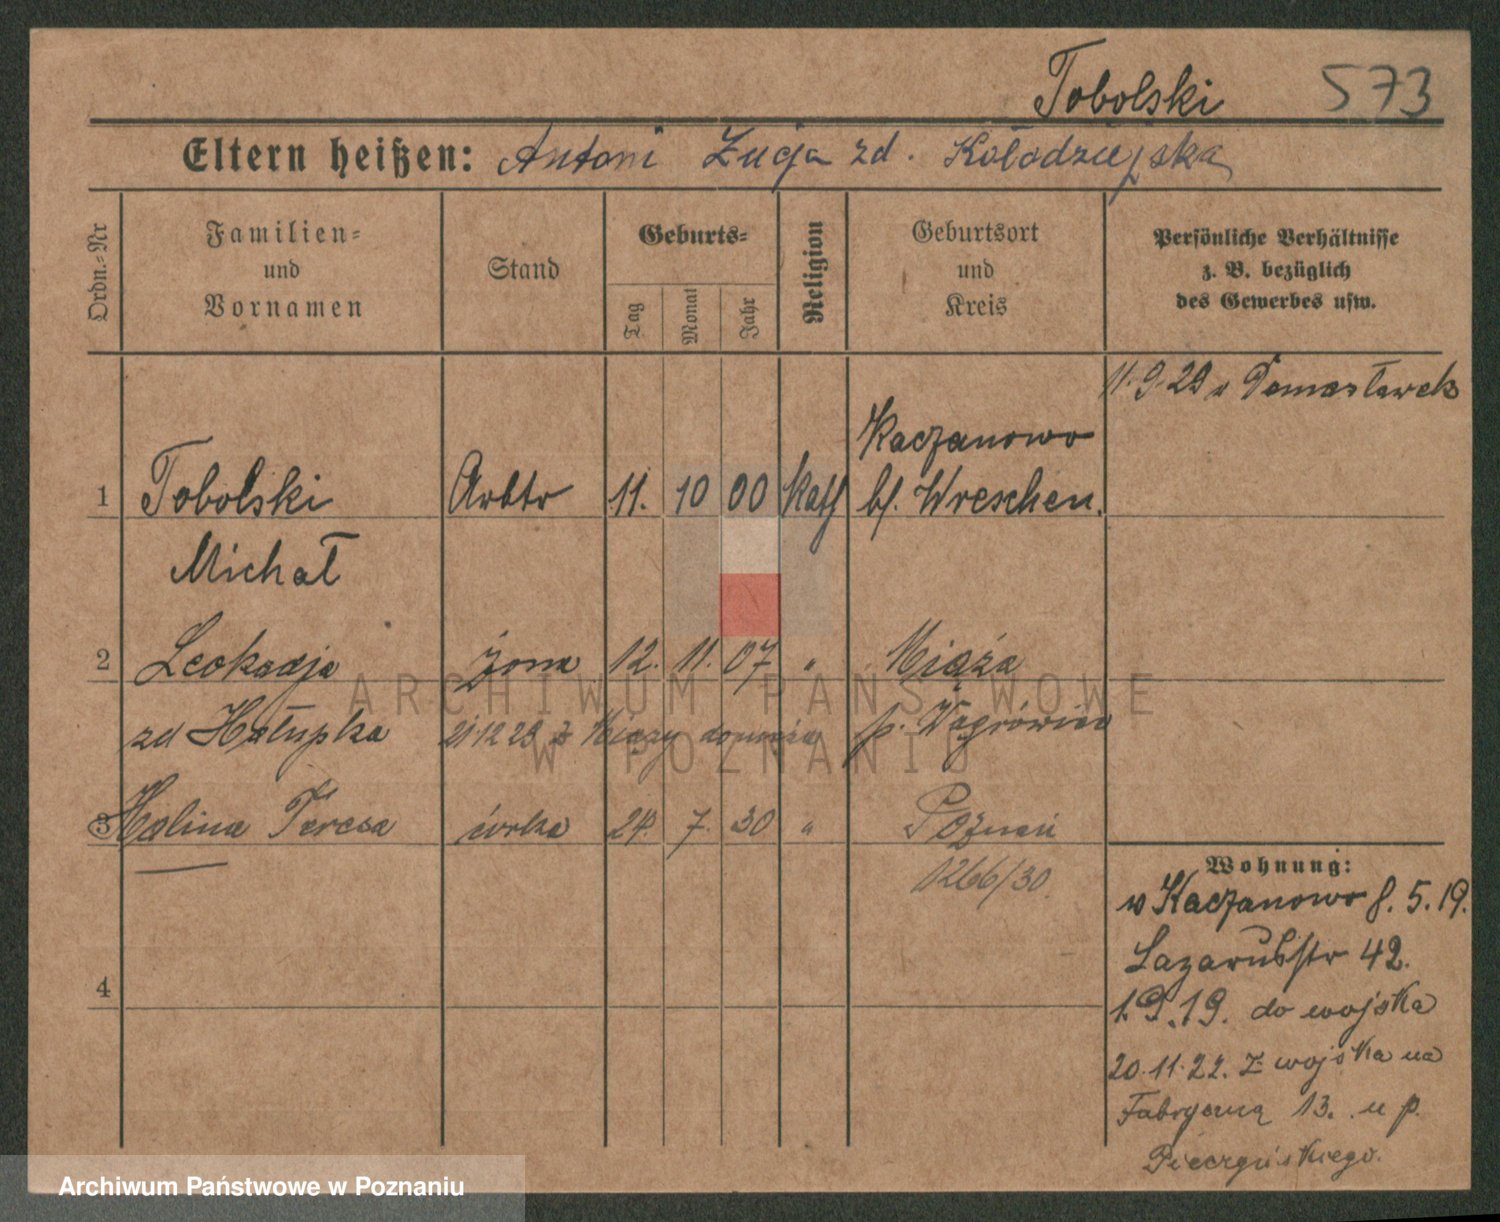 Tobolski 573
Eltern heißen: Antoni Łucja zd. Kołodziejska
Ordn.-Nr
Familien-
und
Vornamen
Stand
Geburts-
Tag
Monat
Jahr
Religion
Geburtsort
und
Kreis
Persönliche Verhältnisse
z. B. bezüglich
des Gewerbes usw.
11.9.29 Domasławek
Kaczanowo
1 Tobolski Arbtr 11. 10 00 Kath b/. Wreschen.
Michał
2 Leokadja żona 12. 11. 07 " Miąża
zd Hałupka 21 12 29 z Miąży p. Wągrówiec
3 Halina Teresa córka 24. 7. 30 " Poznań
1266/30.
4
Wohnung:
w Kaczanowo 8.5.19.
Lazarusstr 42.
1.9.19. do wojska
20.11.22. z wojska na
Fabryczną 13. u p.
ARCHIWUM PAŃSTWOWE
W POZNANIU
Archiwum Państwowe w Poznaniu